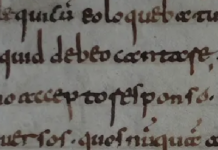 e qui cū eo loquebatu
quid debeo cantare
o accepto responso.
uersos. quos nūquā a